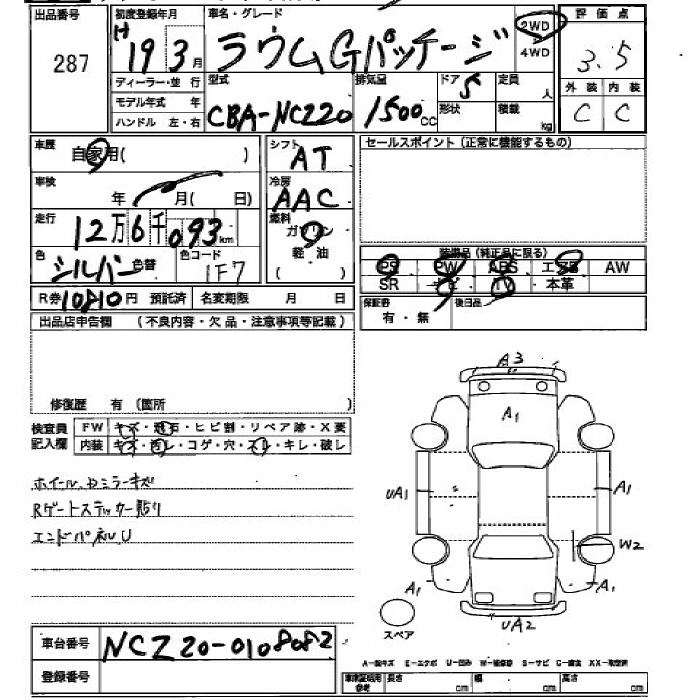 出品番号 初度登録年月 車名・グレード 評価点
287 H19 3月 ラウム Gパッケージ 2WD 4WD 3.5
ディーラー・並 行 型式 排気量 ドア 5 定員 人 外装 内装
モデル年式 年 CBA-NCZ20 1500cc 形状 積載 kg C C
ハンドル 左・右
車歴 自家用( ) シフト AT セールスポイント(正常に機能するもの)
車検 年 月( 日) 冷房 AAC
走行 12万6千093km 燃料 ガソリン 軽油 ( )
色 シルバー 色替 色コード 1F7
装備品(純正品に限る)
PS PW ABS エアB AW
SR ナビ TV 本革
R券 10810円 預託済 名変期限 月 日
保証書 有・無 後日品
出品店申告欄 (不良内容・欠品・注意事項等記載)
修復歴 有(箇所 )
検査員記入欄 FW キズ・飛石・ヒビ割・リペア跡・X要
内装 キズ・汚レ・コゲ・穴・スレ・キレ・破レ
ホイール、ドミラーキズ
Rゲートステッカー貼り
エンドパネルU
A3
A1
UA1
A1
W2
A1
A1
UA2
スペア
車台番号 NCZ20-0108082
登録番号
A-線キズ E-エクボ U-凹み W-補修跡 S-サビ C-腐食 XX-取替済
車庫証明用参考 長さ cm 幅 cm 高さ cm